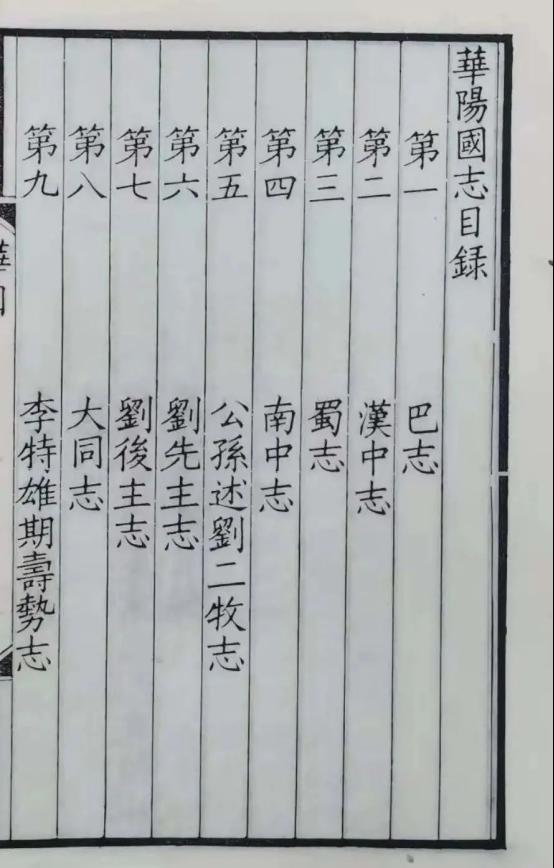 華陽國志目録
第一 巴志
第二 漢中志
第三 蜀志
第四 南中志
第五 公孫述劉二牧志
第六 劉先主志
第七 劉後主志
第八 大同志
第九 李特雄期壽勢志